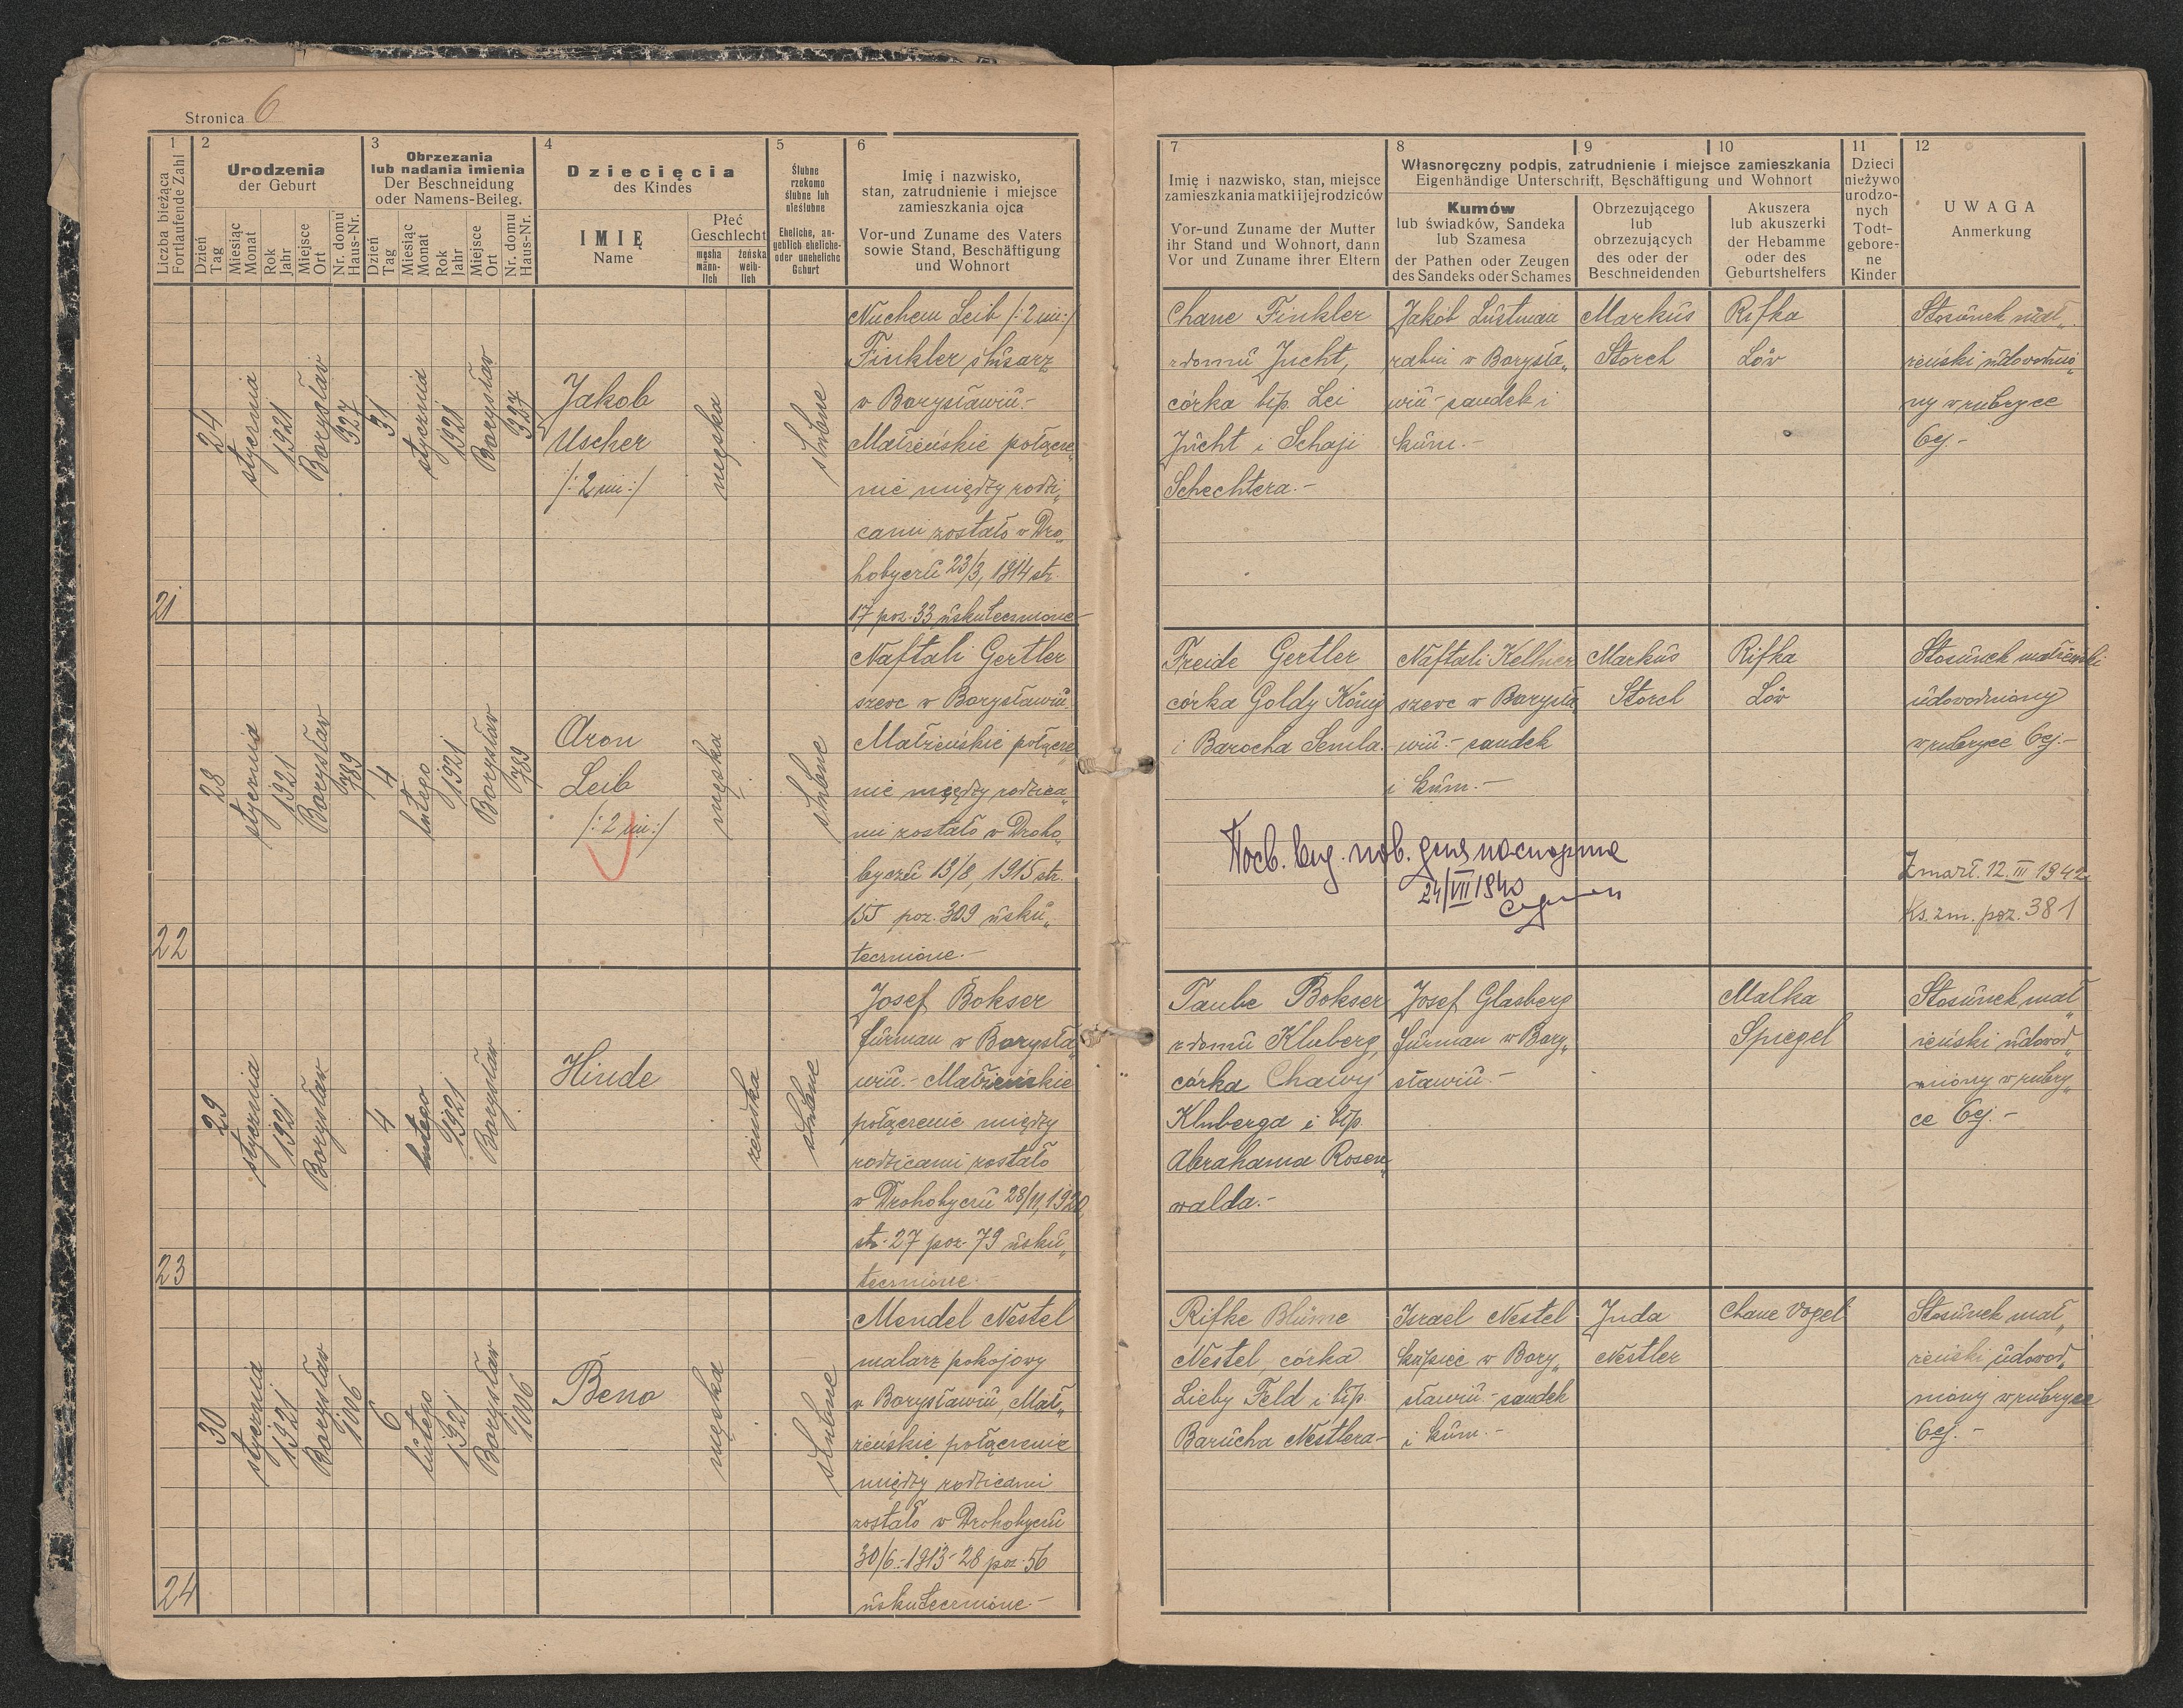 Stronica 6
1
2
3
4
5
6
Liczba bieżąca
Fortlaufende Zahl
Urodzenia
der Geburt
Obrzezania
lub nadania imienia
Der Beschneidung
oder Namens-Beileg.
Dziecięcia
des Kindes
Ślubne
rzekomo
ślubne lub
nieślubne
Eheliche, an-
geblich eheliche-
oder uneheliche
Geburt
Imię i nazwisko,
stan, zatrudnienie i miejsce
zamieszkania ojca
Vor-und Zuname des Vaters
sowie Stand, Beschäftigung
und Wohnort
Dzień
Tag
Miesiąc
Monat
Rok
Jahr
Miejsce
Ort
Nr. domu
Haus-Nr.
Dzień
Tag
Miesiąc
Monat
Rok
Jahr
Miejsce
Ort
Nr. domu
Haus-Nr.
IMIĘ
Name
Płeć
Geschlecht
męska
männ-
lich
żeńska
weib-
lich
7
8
9
10
11
12
Imię i nazwisko, stan, miejsce
zamieszkania matki i jej rodziców
Vor-und Zuname der Mutter
ihr Stand und Wohnort, dann
Vor und Zuname ihrer Eltern
Własnoręczny podpis, zatrudnienie i miejsce zamieszkania
Eigenhändige Unterschrift, Beschäftigung und Wohnort
Kumów
lub świadków, Sandeka
lub Szamesa
der Pathen oder Zeugen
des Sandeks oder Schames
Obrzezującego
lub
obrzezujących
des oder der
Beschneidenden
Akuszera
lub akuszerki
der Hebamme
oder des
Geburtshelfers
Dzieci
nieżywo
urodzo-
nych
Todt-
gebore-
ne
Kinder
UWAGA
Anmerkung
21
24
stycznia
1921
Borysław
327
31
stycznia
1921
Borysław
327
Jakob
Uscher
/: 2 im :/
męska
ślubne
Nuchem Leib /: 2 im :/
Finkler ślusarz
w Borysławiu.-
Małżeńskie połącze„
nie między rodzi„
cami zostało w Dro„
hobyczu 23/3, 1914 str.
17 poz. 33 uskutecznione-
Chane Finkler
z domu Jucht,
córka błp. Lei
Jucht i Schaji
Schechtera.-
Jakób Lustman
rabin w Borysła„
wiu - sandek i
kum.-
Markus
Storch
Rifka
Löw
Stosunek małˮ
żeński udowodnio„
ny w rubryce
6ej.-
22
28
stycznia
1921
Borysław
789
4
lutego
1921
Borysław
789
Aron
Leib
/: 2 im :/
męska
ślubne
Naftali Gertler
szewc w Borysławiu.
Małżeńskie połącze„
nie między rodzica„
mi zostało w Droho„
byczu 13/8, 1915 str.
155 poz. 309 usku„
tecznione.-
Freide Gertler
córka Goldy König
i Barocha Semla.
Naftali Kellner
szewc w Borysła„
wiu.- sandek
i kum.-
Markus
Storch
Rifka
Löw
Stosunek małżeński
udowodniony
w rubryce 6ej.-
24/VII 1940
Zmarł. 12. III 1942
Ks. zm. poz. 381
23
29
stycznia
1921
Borysław
4
lutego
1921
Borysław
Hinde
żeńska
ślubne
Josef Bokser
furman w Borysła„
wiu.- Małżeńskie
połączenie między
rodzicami zostało
w Drohobyczu 28/11, 1920,
str. 27 poz. 79 usku„
tecznione.-
Taube Bokser
z domu Kluberg,
córka Chawy
Kluberga i błp.
Abrahama Rosen„
walda.-
Josef Glasberg
furman w Bory„
sławiu.-
Malka
Spiegel
Stosunek mał„
żeński udowod„
niony w rubry„
ce 6ej.-
24
30
stycznia
1921
Borysław
1006
6
lutego
1921
Borysław
1006
Beno
męska
ślubne
Mendel Nestel
malarz pokojowy
w Borysławiu, Mał„
żeńskie połączenie
między rodzicami
zostało w Drohobyczu
30/6.-1913- 28 poz. 56
uskutecznione.-
Rifke Blume
Nestel, córka
Lieby Feld i błp.
Barucha Nestlera-
Israel Nestel
kupiec w Bory„
sławiu - sandek
i kum.-
Juda
Nestler
Chane Vogel
Stosunek mał„
żeński udowod„
niony w rubryce
6ej.-